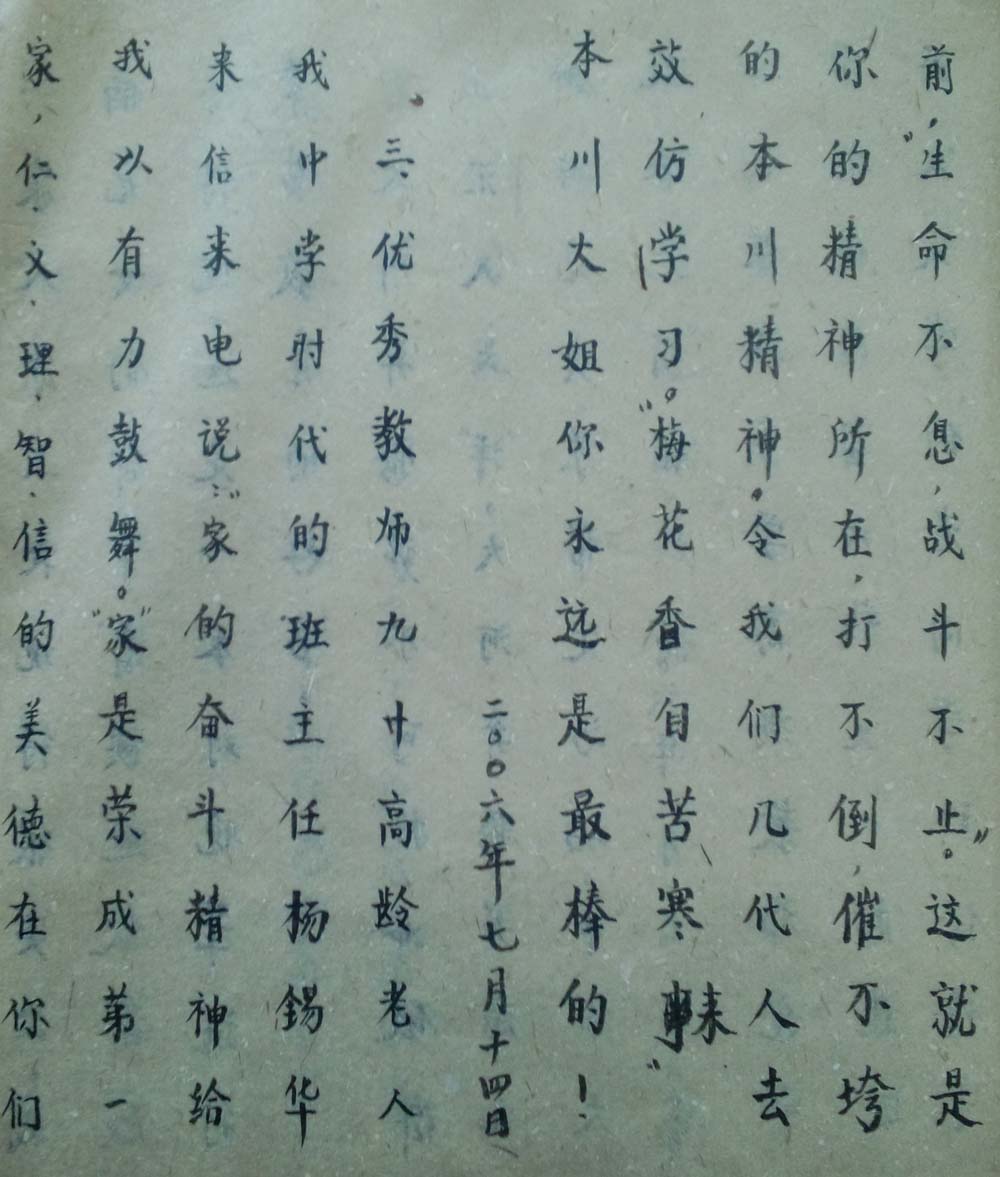 前，“生命不息，战斗不止。”这就是
你的精神所在，打不倒，催不垮
的本川精神。令我们几代人去
效仿学习。“梅花香自苦寒来”
本川大姐你永远是最棒的！
二〇〇六年七月十四日
三、优秀教师九十高龄老人
我中学时代的班主任杨錫华
来信来电说：“家的奋斗精神给
我以有力鼓舞。“家”是荣成第一
家，仁、义、理、智、信的美德在你们